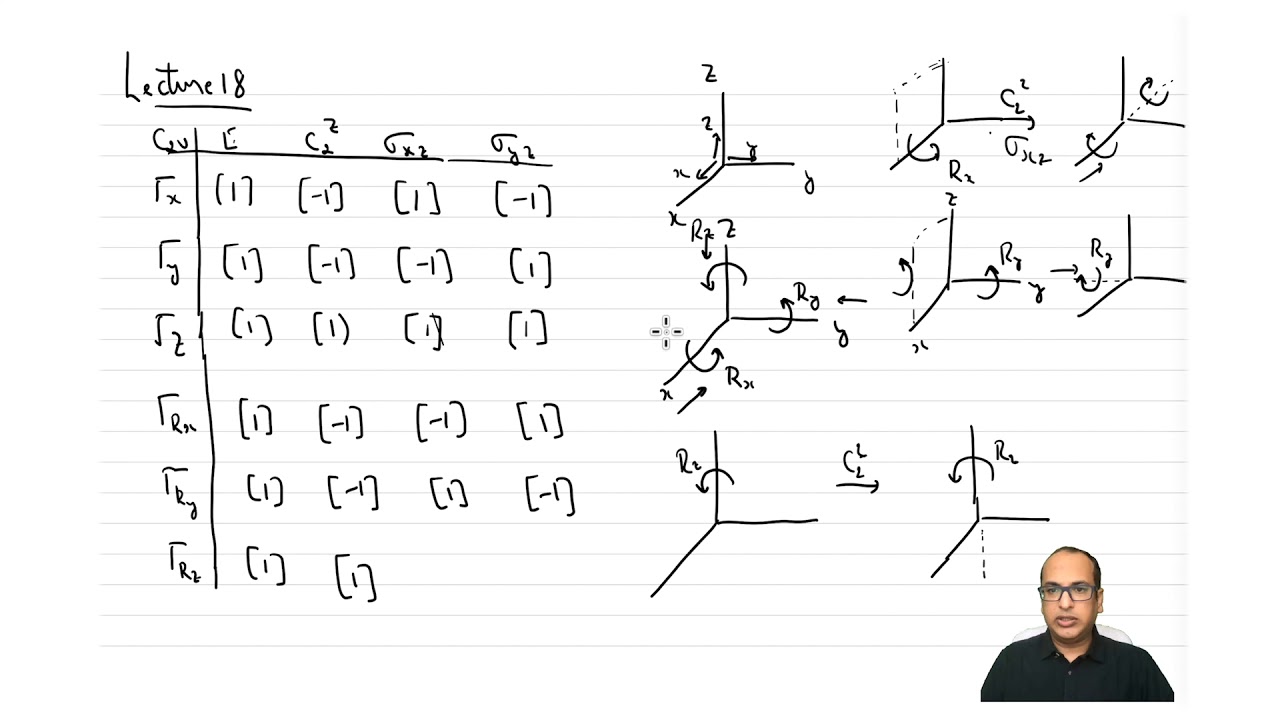 Lecture 18
C2v E C2^z σxz σyz
Γx [1] [-1] [1] [-1]
Γy [1] [-1] [-1] [1]
Γz [1] [1] [1] [1]
ΓRx [1] [-1] [-1] [1]
ΓRy [1] [-1] [1] [-1]
ΓRz [1] [1]
z
z y
x y
x
C2^z
σxz
Rx
Rz z
Ry
y
x Rx
z
Ry
y
x
Ry
Rz
C2^z
Rz